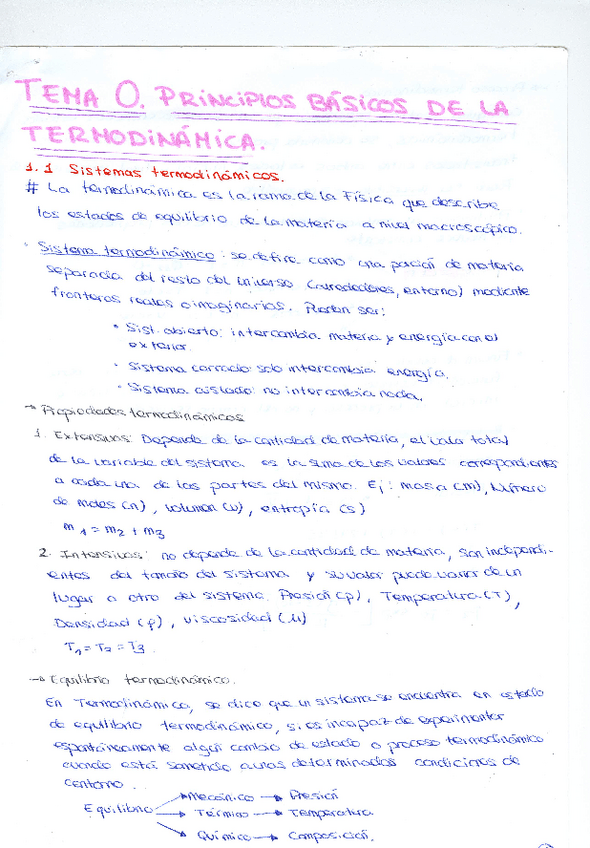 TEMA 0. PRINCIPIOS BÁSICOS DE LA
TERMODINÁMICA.
1.1 Sistemas termodinámicos.
# La termodinámica es la rama de la Física que describe
los estados de equilibrio de la materia a nivel macroscópico.
· Sistema termodinámico: se define como una porción de materia
separada del resto del universo (alrededores, entorno) mediante
fronteras reales o imaginarias. Pueden ser:
· Sist. abierto: intercambia materia y energía con el
exterior.
· Sistema cerrado: solo intercambia energía.
· Sistema aislado: no intercambia nada.
→ Propiedades termodinámicas
1. Extensivas: Depende de la cantidad de materia, el valor total
de la variable del sistema es la suma de los valores correspondientes
a cada una de las partes del mismo. Ej: masa (m), Número
de moles (n), volumen (v), entropía (s)
m₁ = m₂ + m₃
2. Intensivas: no depende de la cantidad de materia, son independi-
entes del tamaño del sistema y su valor puede variar de un
lugar a otro del sistema. Presión (p), Temperatura (T),
Densidad (ρ), viscosidad (μ)
T₁ = T₂ = T₃
→ Equilibrio termodinámico.
En Termodinámica, se dice que un sistema se encuentra en estado
de equilibrio termodinámico, si es incapaz de experimentar
espontáneamente algún cambio de estado o proceso termodinámico
cuando está sometido a unas determinadas condiciones de
contorno.
Equilibrio → Mecánico → Presión
→ Térmico → Temperatura
→ Químico → Composición.